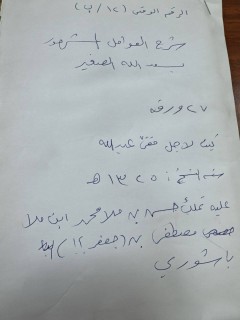 الرقم الوقتي (١٢/ب)
شرح العوامل المشهور
بسعد الله الصغير
٢٧ ورقة
كتبت لاجل فقێ عبدالله
سنة النسخ: ١٣٠٥ هـ
عليه تملك حسن بن ملا محمد ابن ملا
مصطفى بن (جعفر؟!)
باشوري